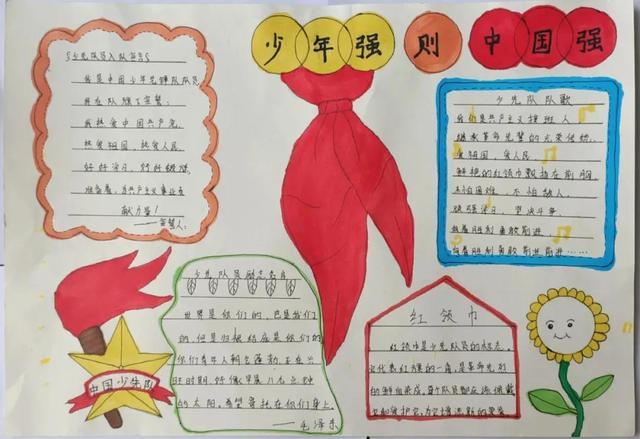 少年强则中国强
少先队员入队誓言
我是中国少年先锋队队员
我在队旗下宣誓:
我热爱中国共产党,
热爱祖国,热爱人民,
好好学习,好好锻炼
准备着,为共产主义事业贡
献力量!
——宣誓人:
少先队队歌
我们是共产主义接班人
继承革命先辈的光荣传统,
爱祖国,爱人民,
鲜艳的红领巾飘扬在前胸
不怕困难,不怕敌人,
顽强学习,坚决斗争,
向着胜利勇敢前进,
向着胜利勇敢前进前进……
少先队员励志名言
世界是你们的,也是我们
的,但是归根结底是你们的
你们青年人朝气蓬勃,正在兴
旺时期,好像早晨八九点钟
的太阳。希望寄托在你们身上。
——毛泽东
红领巾
红领巾是少先队员的标志。
它代表红旗的一角,是革命先烈
的鲜血染成,每个队员都应该佩戴
它和爱护它,为它增添新的荣誉
中国少先队